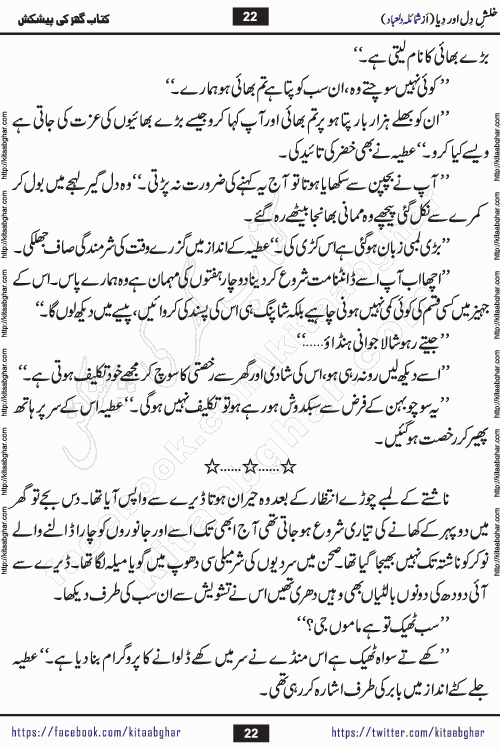 کتاب گھر کی پیشکش
22
خلشِ دِل اور دِیا (از شمائلہ دلعباد)
بڑے بھائی کا نام لیتی ہے۔‘‘
’’کوئی نہیں سوچتے وہ، ان سب کو پتا ہے تم بھائی ہو ہمارے۔‘‘
’’ان کو بھلے ہزار بار پتا ہو پر تم بھائی اور آپ کہا کرو جیسے بڑے بھائیوں کی عزت کی جاتی ہے
ویسے کیا کرو۔‘‘ عطیہ نے بھی خضر کی تائید کی۔
’’آپ نے بچپن سے سکھایا ہوتا تو آج یہ کہنے کی ضرورت نہ پڑتی۔‘‘ وہ دل گیر لہجے میں بول کر
کمرے سے نکل گئی پیچھے وہ ممانی بھانجا بیٹھے رہ گئے۔
’’بڑی لمبی زبان ہو گئی ہے اس کڑی کی۔‘‘ عطیہ کے انداز میں گزرے وقت کی شرمندگی صاف جھلکی۔
’’اچھا اب آپ اسے ڈانٹنا مت شروع کر دینا دو چار ہفتوں کی مہمان ہے وہ ہمارے پاس۔ اس کے
جہیز میں کسی قسم کی کوئی کمی نہیں ہونی چاہیے بلکہ شاپنگ ہی اس کی پسند کی کروائیں، پیسے میں دیکھ لوں گا۔‘‘
’’جیتے رہو شالا جوانی ہنڈاؤ……‘‘
’’اسے دیکھ لیں رو نہ رہی ہو، اس کی شادی اور گھر سے رخصتی کا سوچ کر مجھے خود تکلیف ہوتی ہے۔‘‘
’’یہ سوچو بہن کے فرض سے سبکدوش ہو رہے ہو تو تکلیف نہیں ہو گی۔‘‘ عطیہ اس کے سر پر ہاتھ
پھیر کر رخصت ہو گئیں۔
☆……☆……☆
ناشتے کے لمبے چوڑے انتظار کے بعد وہ حیران ہوتا ڈیرے سے واپس آیا تھا۔ دس بجے تو گھر
میں دوپہر کے کھانے کی تیاری شروع ہو جاتی تھی آج ابھی تک اسے اور جانوروں کو چارا ڈالنے والے
نوکر کو ناشتہ تک نہیں بھیجا گیا تھا۔ صحن میں سردیوں کی شرمیلی سی دھوپ میں گویا میلہ لگا تھا۔ ڈیرے سے
آئی دودھ کی دونوں بالٹیاں بھی وہیں دھری تھیں اس نے تشویش سے ان سب کی طرف دیکھا۔
’’سب ٹھیک تو ہے ماموں جی؟‘‘
’’کھے تے سواہ ٹھیک ہے اس منڈے نے سر میں کھے ڈلوانے کا پروگرام بنا دیا ہے۔‘‘ عطیہ
جلے کٹے انداز میں بابر کی طرف اشارہ کر رہی تھی۔
https://facebook.com/kitaabghar
22
https://twitter.com/kitaabghar
http://kitaabghar.com